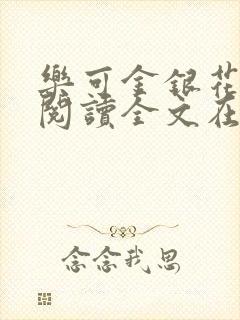 樂可金銀花
閱讀全文在
念念我思